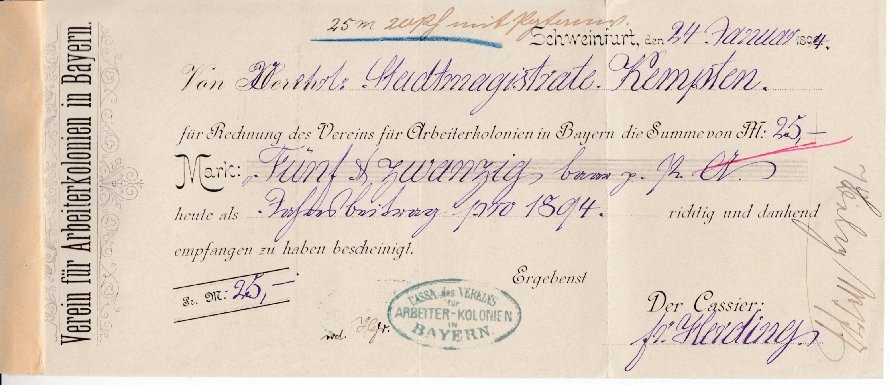 Verein für Arbeiterkolonien in Bayern.
25 m 20 pf mit
Schweinfurt, den 24 Januar 1894.
Von Stadtmagistrate Kempten.
für Rechnung des Vereins für Arbeiterkolonien in Bayern die Summe von M: 25,–
Mark: Fünf & zwanzig baar p.
heute als Jahresbeitrag pro 1894. richtig und dankend
empfangen zu haben bescheinigt.
Ergebenst
M: 25,–
CASSA des VEREINS
für
ARBEITER-KOLONIEN
IN
BAYERN.
Der Cassier:
fr. Herding